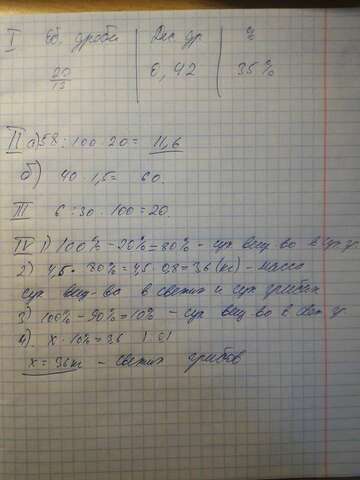 I Об. дроби | Дес. др | %
20/13 | 0,42 | 35%
II а) 58 : 100 · 20 = 11,6
б) 40 · 1,5 = 60.
III 6 : 30 · 100 = 20.
IV 1) 100% - 20% = 80% - сух вещ-во в сух гр
2) 4,5 · 80% = 4,5 · 0,8 = 3,6 (кг) - масса
сух вещ-во в свежих и сух грибах
3) 100% - 90% = 10% - сух вещ-во в свеж гр
4) x · 10% = 3,6
x = 36 кг - свежих грибов